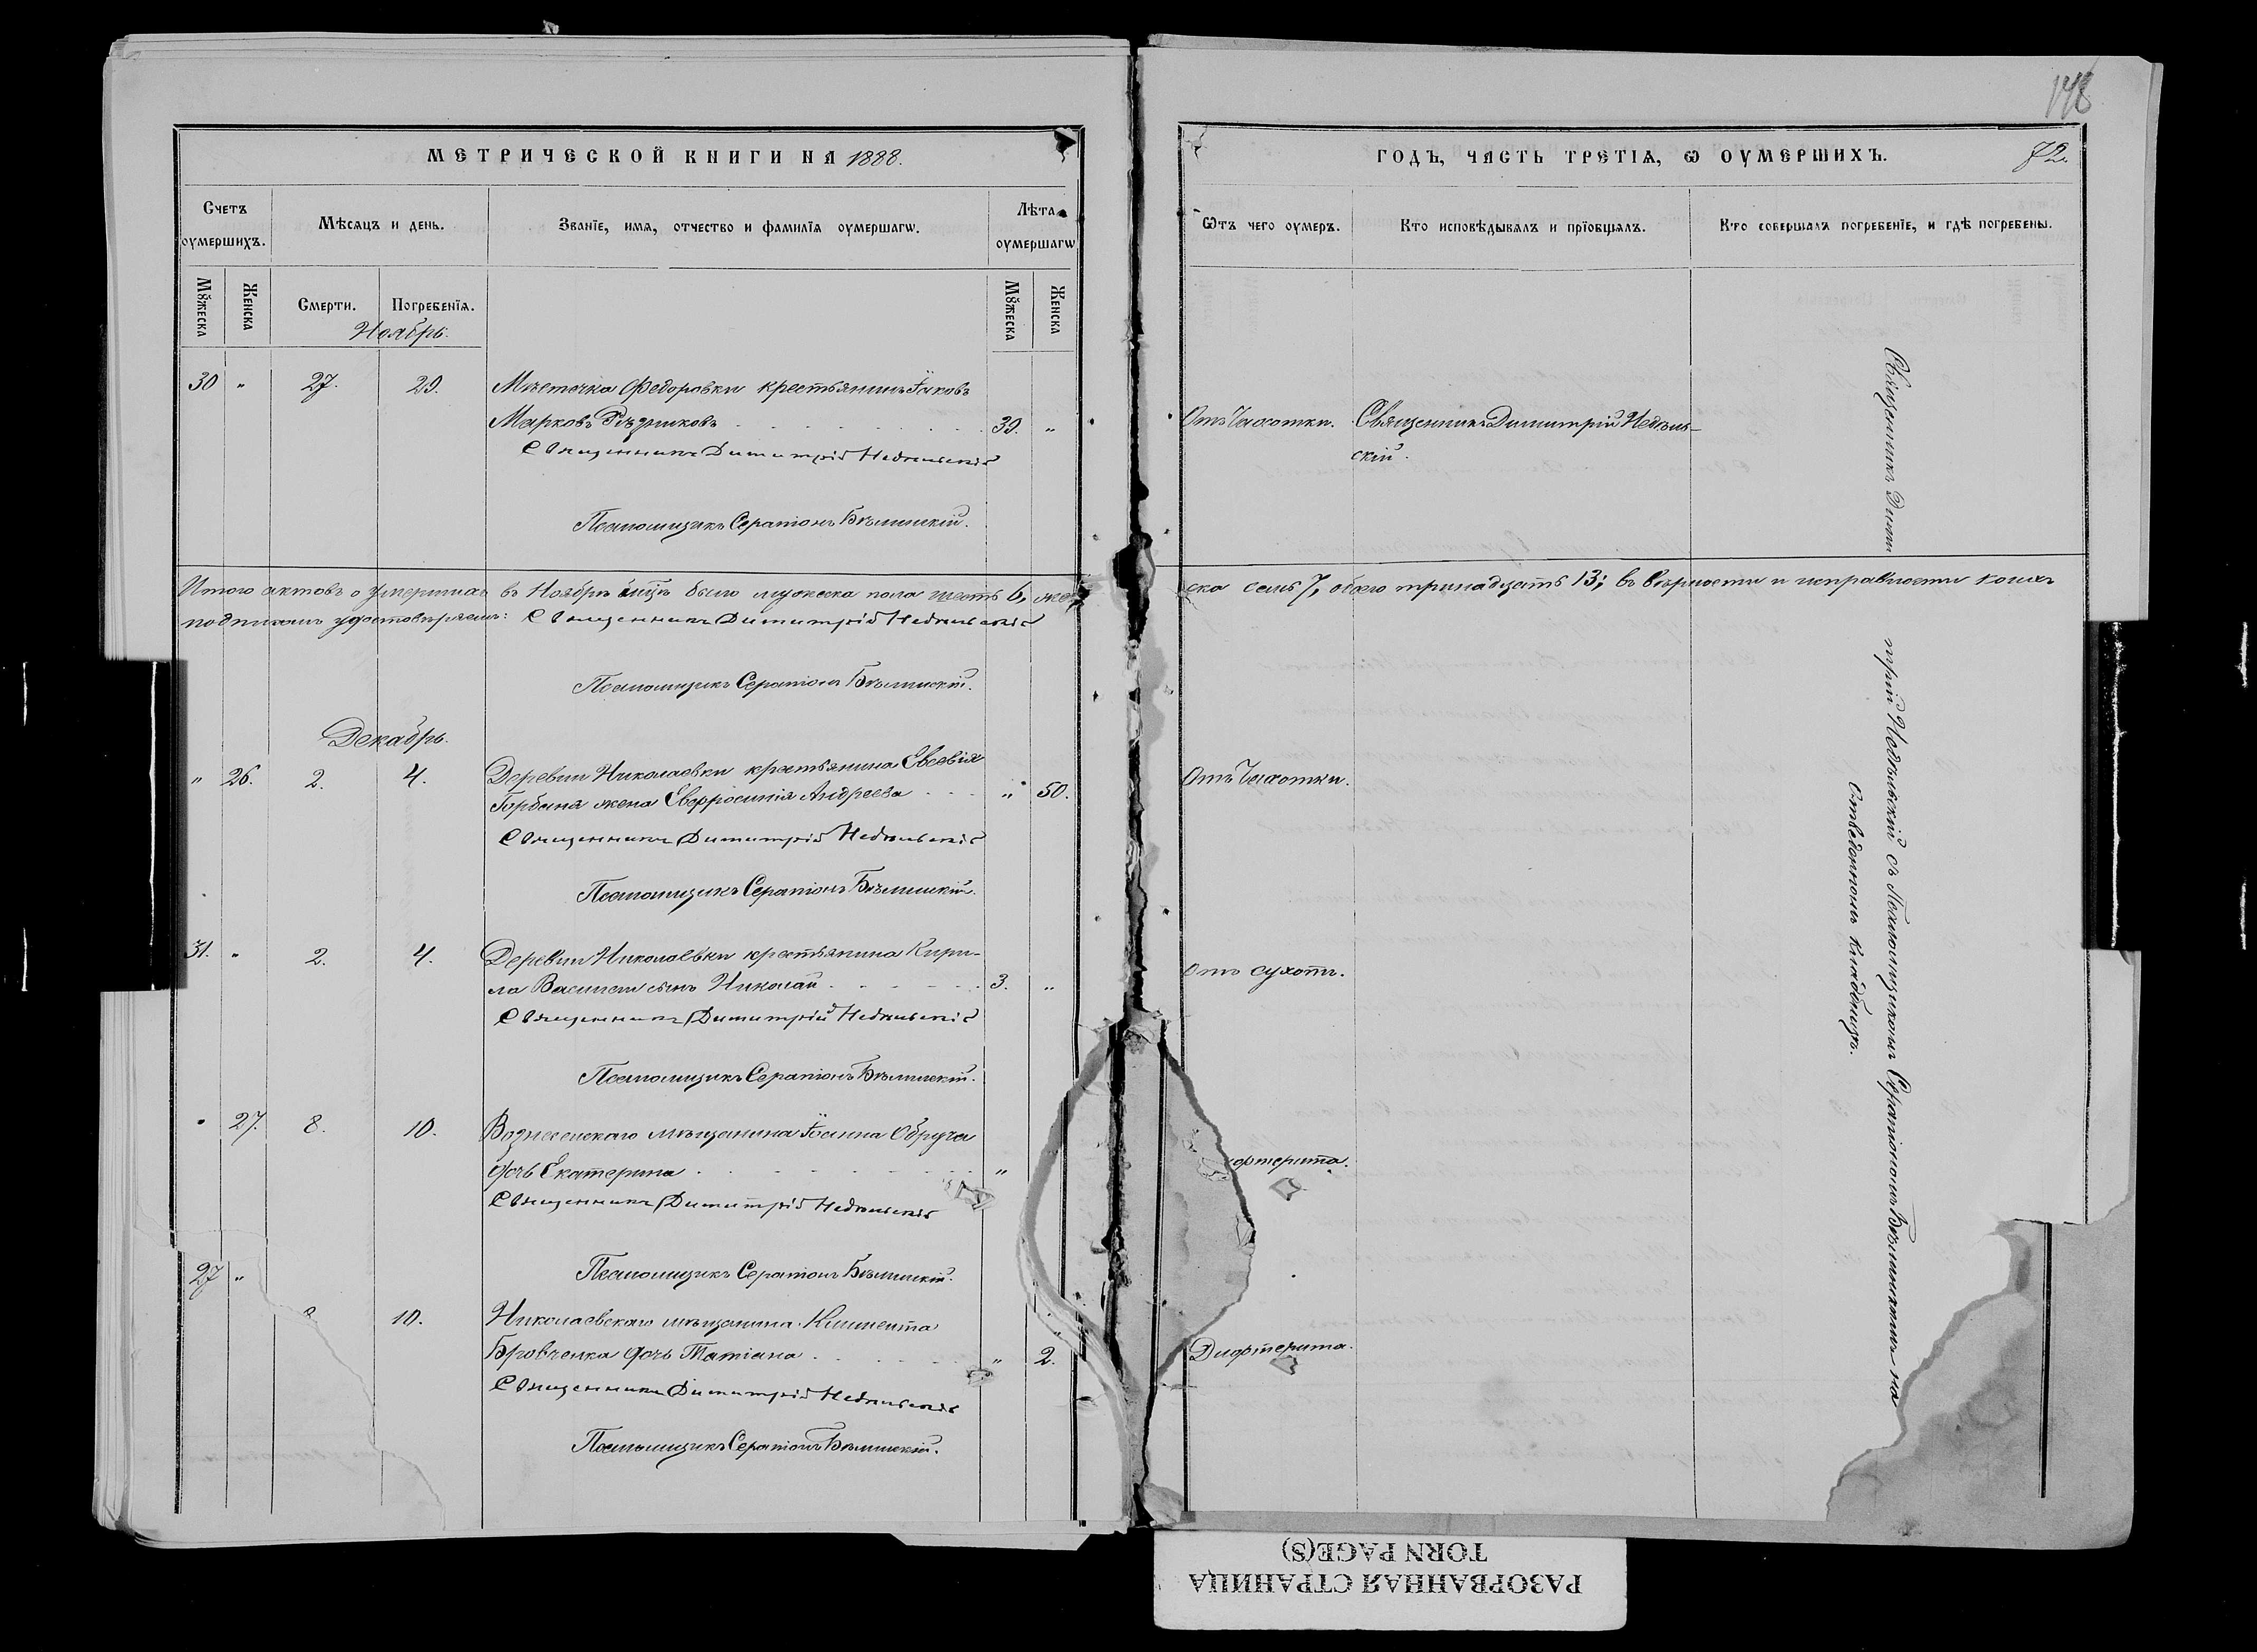 148
МЕТРИЧЕСКОЙ КНИГИ НА 1888.
ГОДЪ, ЧАСТЬ ТРЕТІА, Ѡ ОУМЕРШИХЪ.
72.
Счетъ оумершихъ.
Мѣсяцъ и день.
Званїе, имя, отчество и фамилїа оумершагѡ.
Лѣта оумершагѡ
Ѿтъ чего оумеръ.
Кто исповѣдывалъ и прїобщалъ.
Кто совершалъ погребенїе, и гдѣ погребены.
Мꙋжеска
Женска
Смерти.
Погребенїя.
Мꙋжеска
Женска
Ноябрь.
30 " 27. 29. Мѣстечка Федоровки крестьянинъ Іаковъ
Марковъ Рѣзниковъ 39. " Отъ Чахотки. Священникъ Димитрій Недѣль-
скій.
Священникъ Димитрій Недѣльскій
Псаломщикъ Серапіонъ Бѣлинскій.
Итого актовъ о умершихъ въ Ноябрѣ м-цѣ было мужеска пола шесть 6, жен
ска семь 7, обоего тринадцать 13; въ вѣрности и исправности коихъ
подписомъ удостовѣряемъ: Священникъ Димитрій Недѣльскій
Псаломщикъ Серапіонъ Бѣлинскій.
Декабрь.
" 26. 2. 4. Деревни Николаевки крестьянина Евсевія
Горбаня жена Евфросинія Андреева " 50. Отъ Чахотки.
Священникъ Димитрій Недѣльскій
Псаломщикъ Серапіонъ Бѣлинскій.
31. " 2. 4. Деревни Николаевки крестьянина Кири-
ла сынъ Николай 3. " Отъ сухотъ.
Священникъ Димитрій Недѣльскій
Псаломщикъ Серапіонъ Бѣлинскій.
" 27. 8. 10. Вознесенскаго мѣщанина Іоанна Обруча
дочь Екатерина " фтерита.
Священникъ Димитрій Недѣльскій
Псаломщикъ Серапіонъ Бѣлинскій.
27 "
10. Николаевскаго мѣщанина Климента
Бровченка дочь Татіана " 2. Дифтерита.
Священникъ Димитрій Недѣльскій
Псаломщикъ Серапіонъ Бѣлинскій.
Священникъ Дими
трій Недѣльскій съ Псаломщикомъ Серапіономъ Бѣлинскимъ на
отведенномъ кладбищѣ.
РАЗОРВАННАЯ СТРАНИЦА
TORN PAGE(S)